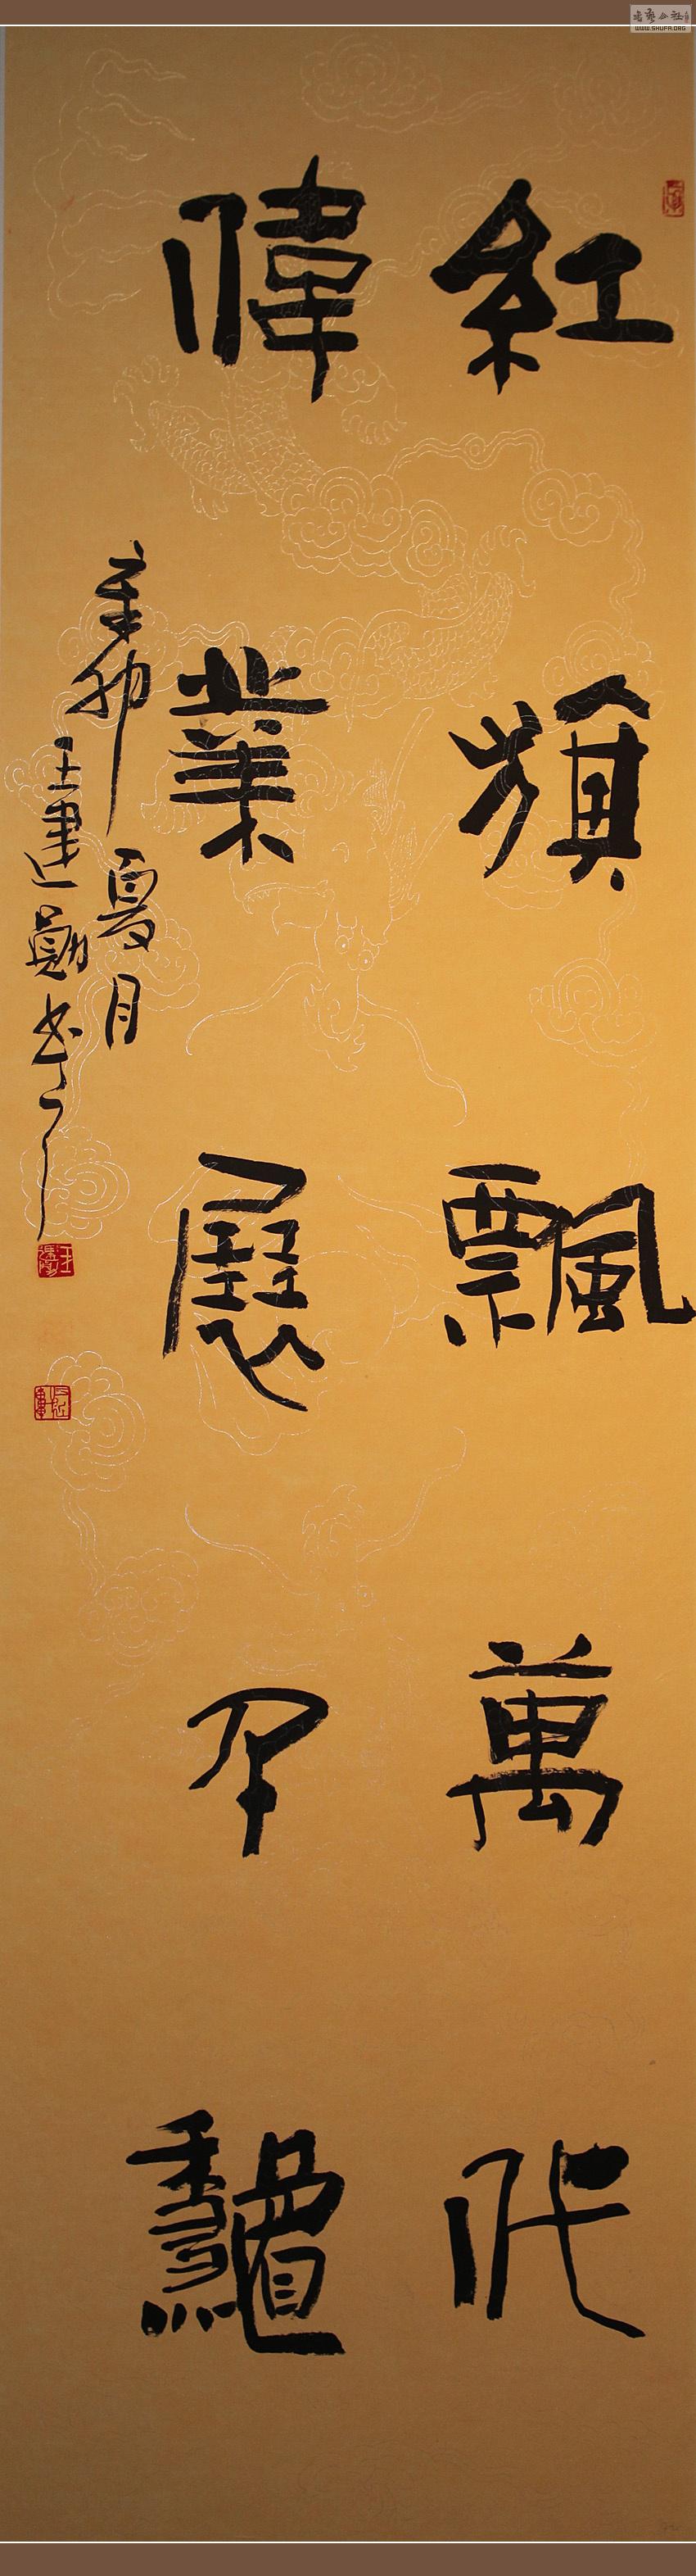 紅旗飄萬代
偉業展千龝
辛卯夏月
王建勛書
WWW.SHUFA.ORG